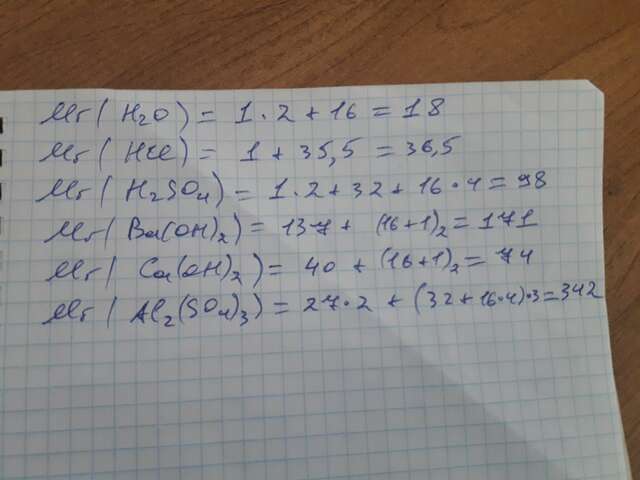 Mr( H₂O ) = 1·2 + 16 = 18
Mr( HCl ) = 1 + 35,5 = 36,5
Mr( H₂SO₄) = 1·2 + 32 + 16·4 = 98
Mr( Ba(OH)₂) = 137 + (16+1)₂ = 171
Mr( Ca(OH)₂) = 40 + (16+1)₂ = 74
Mr( Al₂(SO₄)₃) = 27·2 + (32+16·4)·3 = 342